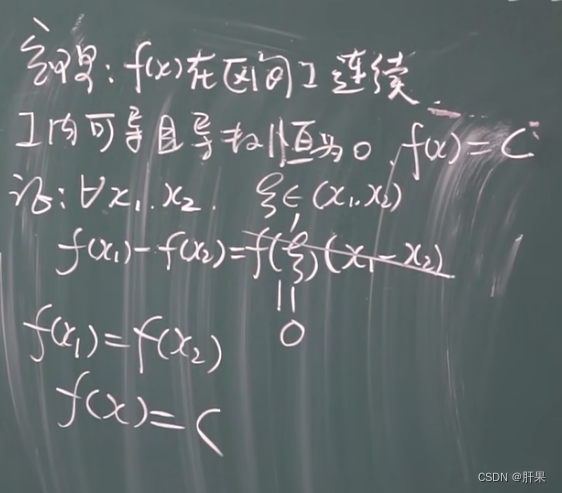 定理：f(x)在区间I连续
I内可导且导数恒为0，f(x)=C
证：∀x₁.x₂. ξ∈(x₁.x₂)
f(x₁)-f(x₂)=f'(ξ)(x₁-x₂)
||
0
f(x₁)=f(x₂)
f(x)=C
CSDN @肝果